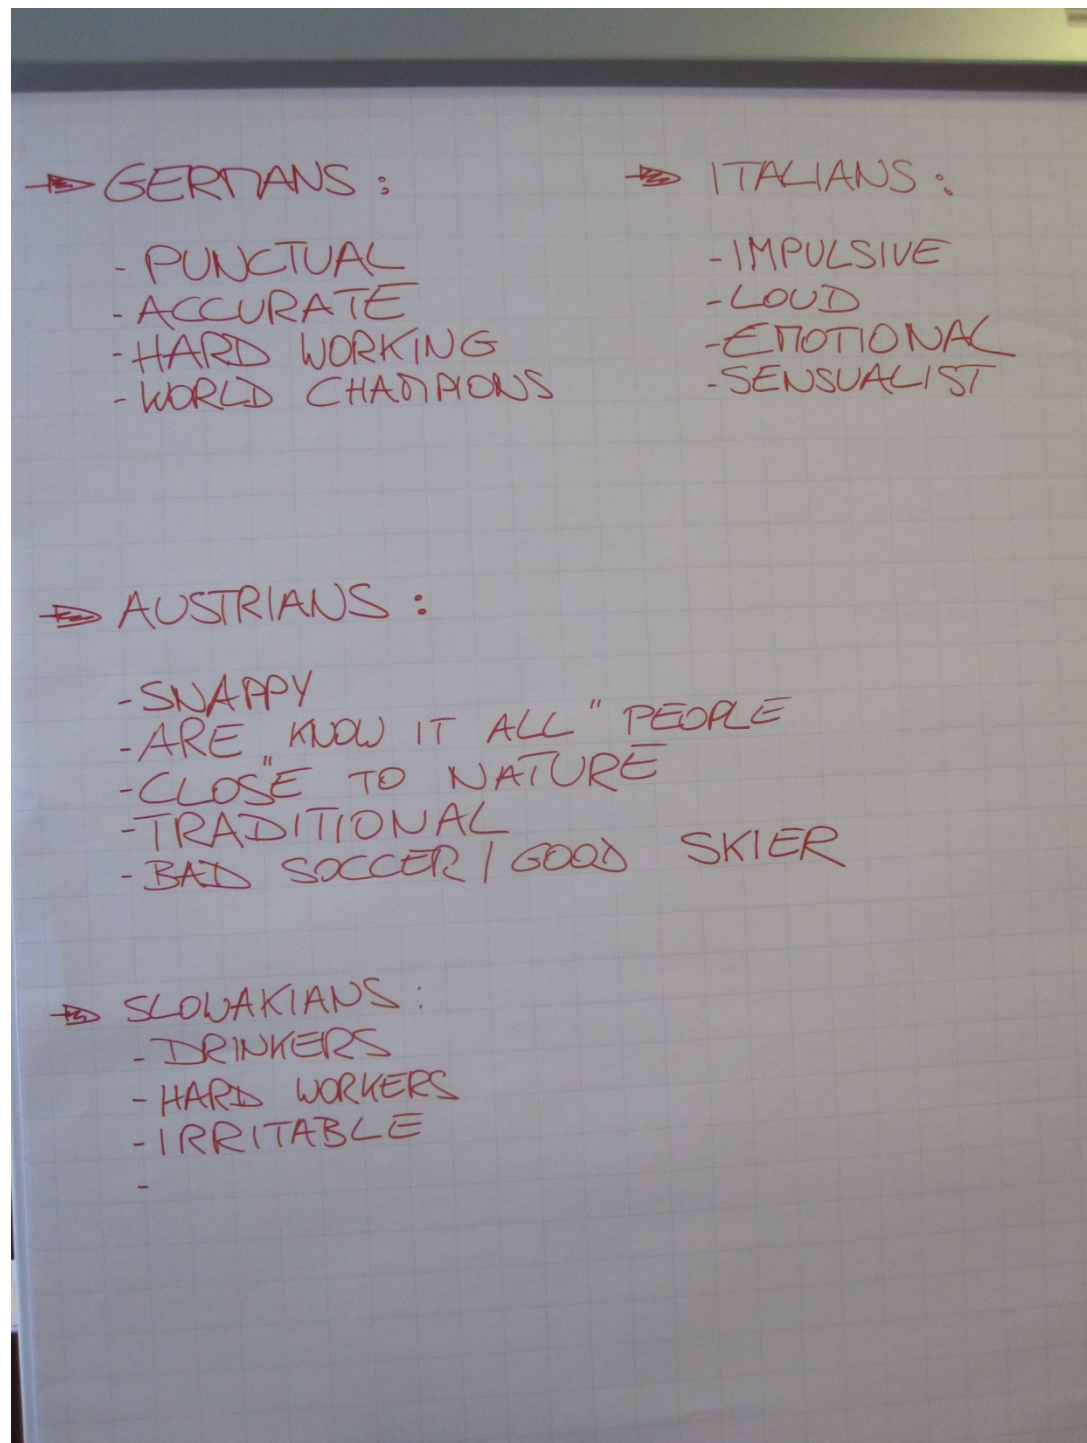 → GERMANS :
- PUNCTUAL
- ACCURATE
- HARD WORKING
- WORLD CHAMPIONS
→ ITALIANS :
- IMPULSIVE
- LOUD
- EMOTIONAL
- SENSUALIST
→ AUSTRIANS :
- SNAPPY
- ARE „KNOW IT ALL" PEOPLE
- CLOSE TO NATURE
- TRADITIONAL
- BAD SOCCER / GOOD SKIER
→ SLOWAKIANS :
- DRINKERS
- HARD WORKERS
- IRRITABLE
-